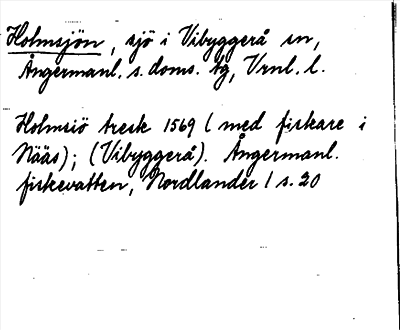 Holmsjön, sjö i Vibyggerå sn,
Ångermanl. s. doms. tg, Vrnl. l.
Holmsiö tresk 1569 (med fiskare i
Nääs); (Vibyggerå). Ångermanl.
fiskevatten, Nordlander 1 s. 20